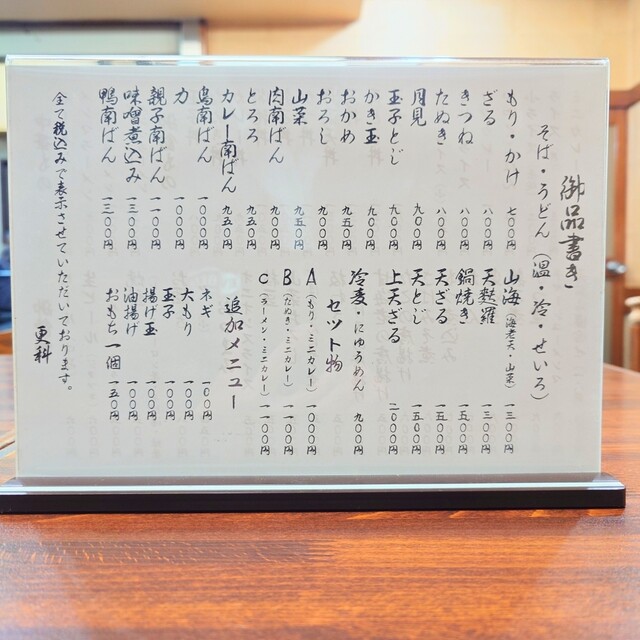 御品書き
そば・うどん（温・冷・せいろ）
もり・かけ 七〇〇円
ざる 八〇〇円
きつね 八〇〇円
たぬき 八〇〇円
月見 九〇〇円
玉子とじ 九〇〇円
かき玉 九〇〇円
おかめ 九五〇円
おろし 九〇〇円
山菜 九五〇円
肉南ばん 九五〇円
とろろ 九五〇円
カレー南ばん 九五〇円
鳥南ばん 一〇〇〇円
力 一〇〇〇円
親子南ばん 一一〇〇円
味噌煮込み 一三〇〇円
鴨南ばん 一三〇〇円
山海（海老天・山菜） 一三〇〇円
天麩羅 一三〇〇円
鍋焼き 一五〇〇円
天ざる 一五〇〇円
天とじ 一五〇〇円
上天ざる 二〇〇〇円
冷麦・にゅうめん 九〇〇円
セット物
A（もり・ミニカレー） 一〇〇〇円
B（たぬき・ミニカレー） 一一〇〇円
C（ラーメン・ミニカレー） 一一〇〇円
追加メニュー
ネギ 一〇〇円
大もり 一〇〇円
玉子 一〇〇円
揚げ玉 一〇〇円
油揚げ 一〇〇円
おもち一個 一五〇円
全て税込みで表示させていただいております。
更科